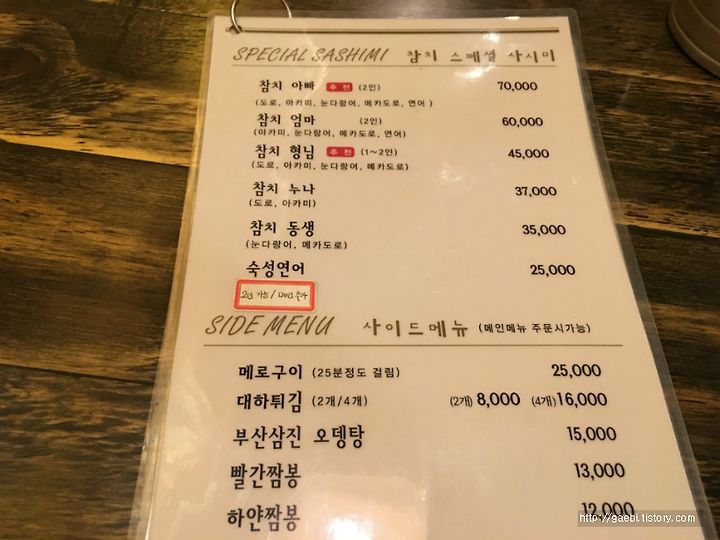 SPECIAL SASHIMI 참치 스페셜 사시미
참치 아빠 추천 (2인) 70,000
(도로, 아카미, 눈다랑어, 메카도로, 연어 )
참치 엄마 (2인) 60,000
(아카미, 눈다랑어, 메카도로, 연어)
참치 형님 추천 (1~2인) 45,000
(도로, 아카미, 눈다랑어, 메카도로)
참치 누나 37,000
(도로, 아카미)
참치 동생 35,000
(눈다랑어, 메카도로)
숙성연어 25,000
SIDE MENU 사이드메뉴 (메인메뉴 주문시가능)
메로구이 (25분정도 걸림) 25,000
대하튀김 (2개/4개) (2개) 8,000 (4개)16,000
부산삼진 오뎅탕 15,000
빨간짬봉 13,000
하얀짬봉 12,000
http://gaebi.tistory.com